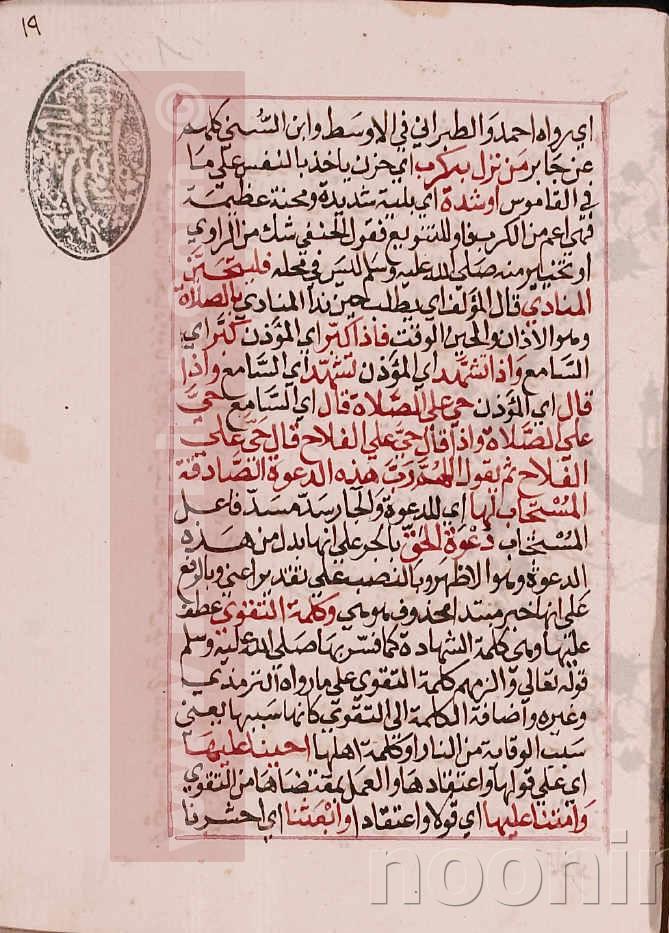 ١٩
اي رواه احمد والطبراني في الاوسط وابن السني كلهم
عن جابر من نزل به كرب اي حزن ياخذ بالنفس علي ما
في القاموس او شدة اي بلية شديدة ومحنة عظيمة
فهي اعم من الكرب فاو للتنويع فقول الحنفي شك من الراوي
او تخيير منه صلي الله عليه وسلم ليس في محله فليتحين
المنادي قال المؤلف اي يطلب حين ندا المنادي بالصلاة
وهو الاذان والحين الوقت فاذا كبر اي المؤذن كبر اي
السامع واذا تشهد اي المؤذن تشهد اي السامع واذا
قال اي المؤذن حي علي الصلاة قال اي السامع حي
علي الصلاة واذا قال حي علي الفلاح قال حي علي
الفلاح ثم يقول اللهم رب هذه الدعوة الصادقة
المستجاب لها اي للدعوة والجار سد مسد فاعل
المستجاب دعوة الحق بالجر علي انها بدل من هذه
الدعوة وهو الاظهر وبالنصب علي تقدير اعني وبالرفع
علي انها خبر مبتدا محذوف هو هي وكلمة التقوي عطف
عليها وهي كلمة الشهادة كما فسر بها صلي الله عليه وسلم
قوله تعالي والزمهم كلمة التقوي علي ما رواه الترمذي
وغيره واضافة الكلمة الي التقوي كانها سببها يعني
سبب الوقاية من النار او كلمة اهلها احينا عليها
اي علي قولها واعتقادها والعمل بمقتضاها من التقوي
وامتنا عليها اي قولا واعتقادا وابعثنا اي احشرنا
noonin